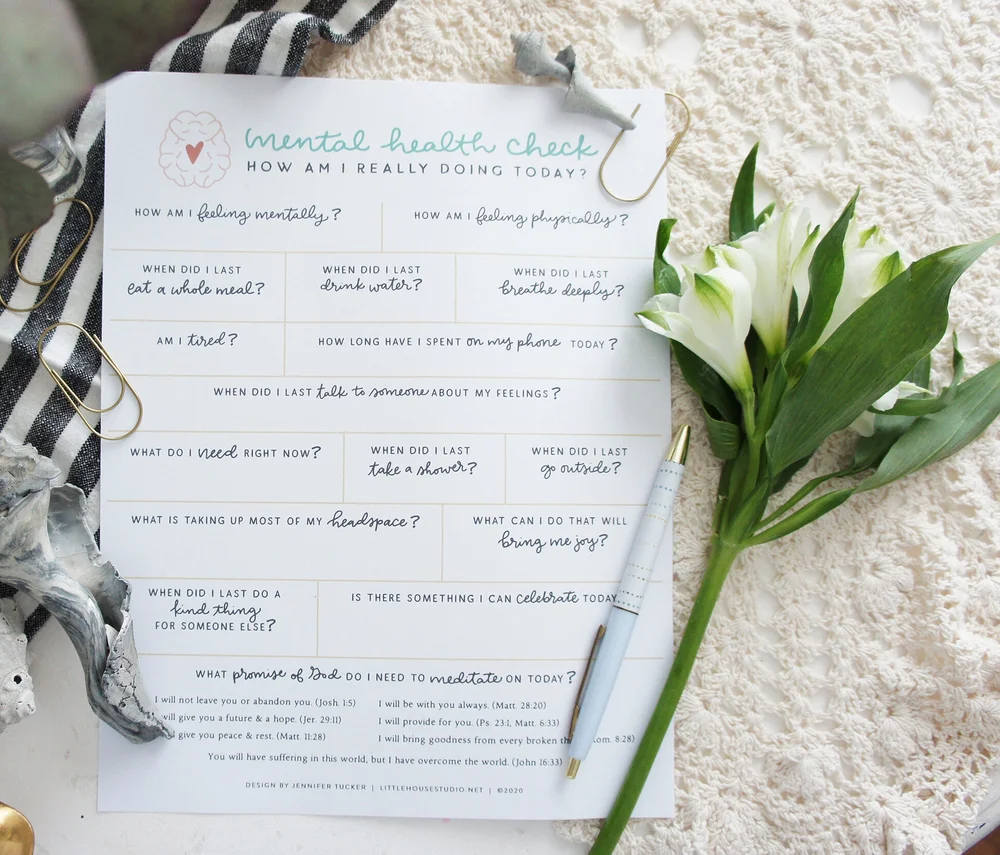 mental health check
HOW AM I REALLY DOING TODAY?
HOW AM I feeling mentally?
HOW AM I feeling physically?
WHEN DID I LAST
eat a whole meal?
WHEN DID I LAST
drink water?
WHEN DID I LAST
breathe deeply?
AM I tired?
HOW LONG HAVE I SPENT on my phone TODAY?
WHEN DID I LAST talk to someone ABOUT MY FEELINGS?
WHAT DO I need RIGHT NOW?
WHEN DID I LAST
take a shower?
WHEN DID I LAST
go outside?
WHAT IS TAKING UP MOST OF MY headspace?
WHAT CAN I DO THAT WILL
bring me joy?
WHEN DID I LAST DO A
kind thing
FOR SOMEONE ELSE?
IS THERE SOMETHING I CAN celebrate TODAY
WHAT promise of God DO I NEED TO meditate ON TODAY?
I will not leave you or abandon you. (Josh. 1:5)
will give you a future & a hope. (Jer. 29:11)
give you peace & rest. (Matt. 11:28)
I will be with you always. (Matt. 28:20)
I will provide for you. (Ps. 23:1, Matt. 6:33)
I will bring goodness from every broken 8:28)
You will have suffering in this world, but I have overcome the world. (John 16:33)
DESIGN BY JENNIFER TUCKER | LITTLEHOUSESTUDIO.NET | ©2020